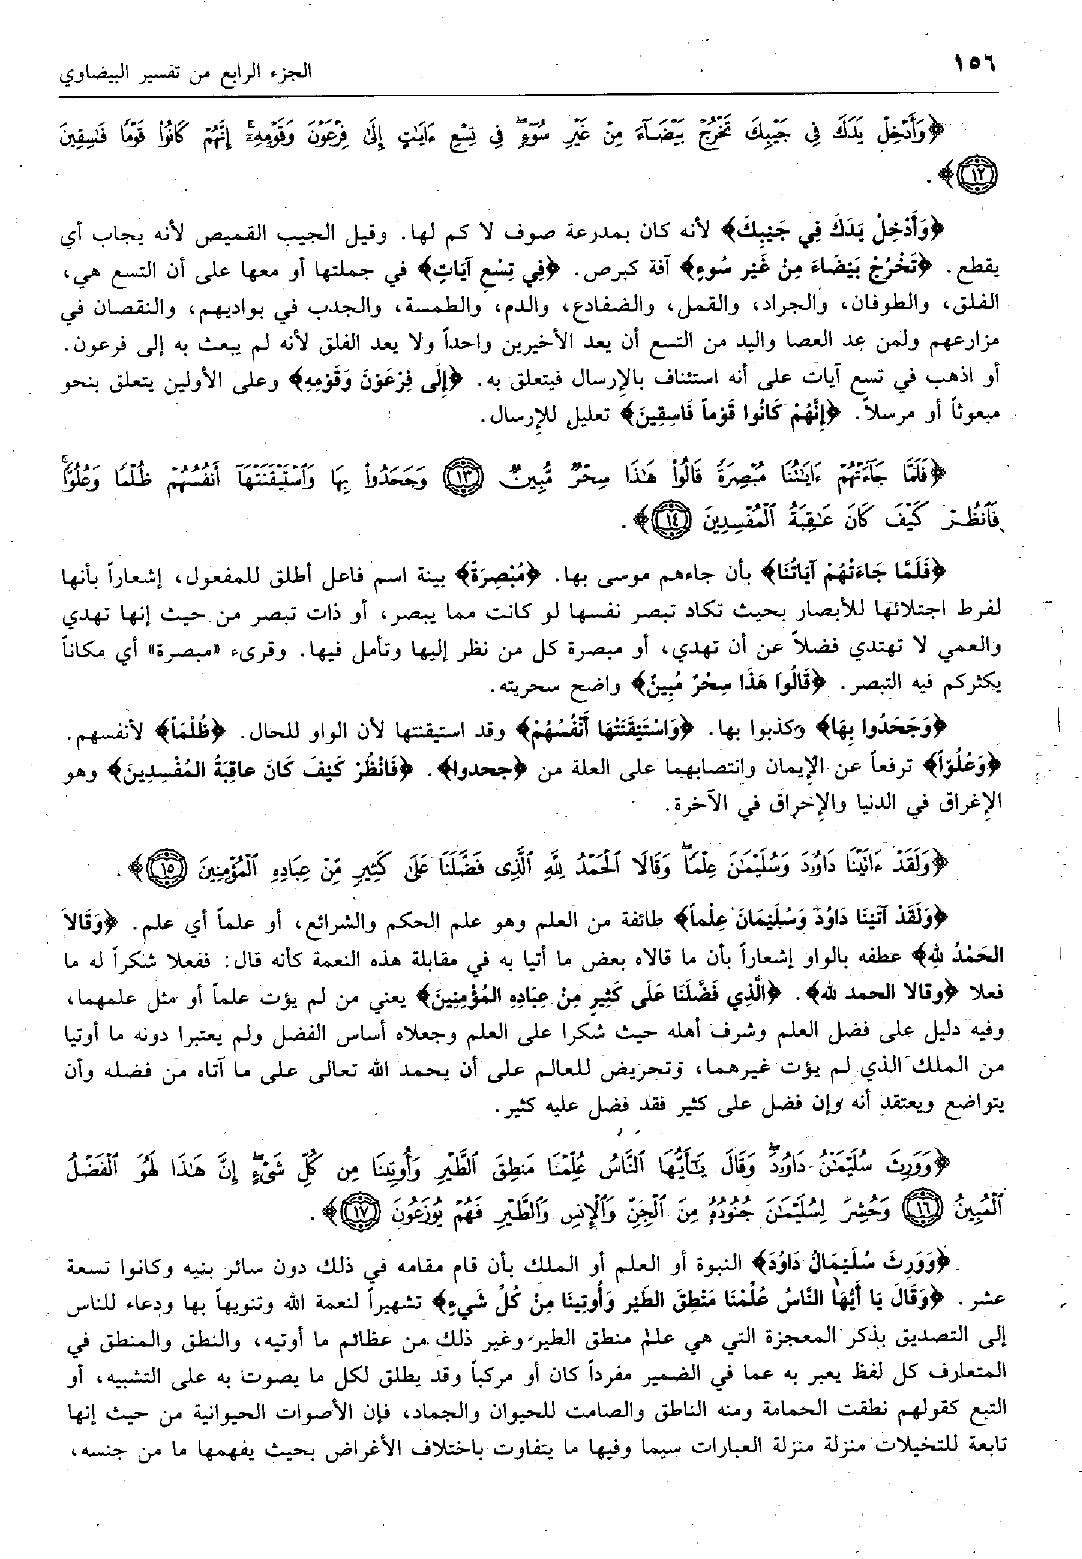 ١٥٦
الجزء الرابع من تفسير البيضاوي
﴿وَأَدْخِلْ يَدَكَ فِي جَيْبِكَ تَخْرُجْ بَيْضَآءَ مِنْ غَيْرِ سُوٓءٍ فِي تِسْعِ ءَايَٰتٍ إِلَىٰ فِرْعَوْنَ وَقَوْمِهِۦٓ إِنَّهُمْ كَانُوا۟ قَوْمًا فَٰسِقِينَ
١٢﴾.
﴿وَأَدْخِلْ يَدَكَ فِي جَيْبِكَ﴾ لأنه كان بمدرعة صوف لا كم لها. وقيل الجيب القميص لأنه يجاب أي
يقطع. ﴿تَخْرُجْ بَيْضَاءَ مِنْ غَيْرِ سُوءٍ﴾ آفة كبرص. ﴿فِي تِسْعِ آيَاتٍ﴾ في جملتها أو معها على أن التسع هي،
الفلق، والطوفان، والجراد، والقمل، والضفادع، والدم، والطمسة، والجدب في بواديهم، والنقصان في
مزارعهم ولمن عد العصا واليد من التسع أن يعد الأخيرين واحداً ولا يعد الفلق لأنه لم يبعث به إلى فرعون.
أو اذهب في تسع آيات على أنه استئناف بالإرسال فيتعلق به. ﴿إِلَى فِرْعَوْنَ وَقَوْمِهِ﴾ وعلى الأولين يتعلق بنحو
مبعوثاً أو مرسلاً. ﴿إِنَّهُمْ كَانُوا قَوْماً فَاسِقِينَ﴾ تعليل للإرسال.
﴿فَلَمَّا جَآءَتْهُمْ ءَايَٰتُنَا مُبْصِرَةً قَالُوا۟ هَٰذَا سِحْرٌ مُّبِينٌ ١٣ وَجَحَدُوا۟ بِهَا وَٱسْتَيْقَنَتْهَآ أَنفُسُهُمْ ظُلْمًا وَعُلُوًّا ۚ
فَٱنظُرْ كَيْفَ كَانَ عَٰقِبَةُ ٱلْمُفْسِدِينَ ١٤﴾.
﴿فَلَمَّا جَاءَتْهُمْ آيَاتُنَا﴾ بأن جاءهم موسى بها. ﴿مُبْصِرَةً﴾ بينة اسم فاعل أطلق للمفعول، إشعاراً بأنها
لفرط اجتلائها للأبصار بحيث تكاد تبصر نفسها لو كانت مما يبصر، أو ذات تبصر من حيث إنها تهدي
والعمي لا تهتدي فضلاً عن أن تهدي، أو مبصرة كل من نظر إليها وتأمل فيها. وقرىء «مبصرة» أي مكاناً
يكثركم فيه التبصر. ﴿قَالُوا هَذَا سِحْرٌ مُبِينٌ﴾ واضح سحريته.
﴿وَجَحَدُوا بِهَا﴾ وكذبوا بها. ﴿وَاسْتَيْقَنَتْهَا أَنْفُسُهُمْ﴾ وقد استيقنتها لأن الواو للحال. ﴿ظُلْمَاً﴾ لأنفسهم.
﴿وَعُلُوّاً﴾ ترفعاً عن الإيمان وانتصابهما على العلة من ﴿جحدوا﴾. ﴿فَانْظُرْ كَيْفَ كَانَ عاقِبَةُ المُفْسِدِينَ﴾ وهو
الإغراق في الدنيا والإحراق في الآخرة.
﴿وَلَقَدْ ءَاتَيْنَا دَاوُۥدَ وَسُلَيْمَٰنَ عِلْمًا ۖ وَقَالَا ٱلْحَمْدُ لِلَّهِ ٱلَّذِى فَضَّلَنَا عَلَىٰ كَثِيرٍ مِّنْ عِبَادِهِ ٱلْمُؤْمِنِينَ ١٥﴾.
﴿وَلَقَدْ آتَيْنَا دَاوُدَ وَسُلَيْمَانَ عِلْماً﴾ طائفة من العلم وهو علم الحكم والشرائع، أو علماً أي علم. ﴿وَقَالاَ
الحَمْدُ لله﴾ عطفه بالواو إشعاراً بأن ما قالاه بعض ما أتيا به في مقابلة هذه النعمة كأنه قال: ففعلا شكراً له ما
فعلا ﴿وقالا الحمد لله﴾. ﴿الَّذِي فَضَّلَنَا عَلَى كَثِيرٍ مِنْ عِبَادِهِ المُؤْمِنِينَ﴾ يعني من لم يؤت علماً أو مثل علمهما،
وفيه دليل على فضل العلم وشرف أهله حيث شكرا على العلم وجعلاه أساس الفضل ولم يعتبرا دونه ما أوتيا
من الملك الذي لم يؤت غيرهما، وتحريض للعالم على أن يحمد الله تعالى على ما آتاه من فضله وأن
يتواضع ويعتقد أنه وإن فضل على كثير فقد فضل عليه كثير.
﴿وَوَرِثَ سُلَيْمَٰنُ دَاوُۥدَ ۖ وَقَالَ يَٰٓأَيُّهَا ٱلنَّاسُ عُلِّمْنَا مَنطِقَ ٱلطَّيْرِ وَأُوتِينَا مِن كُلِّ شَىْءٍ ۖ إِنَّ هَٰذَا لَهُوَ ٱلْفَضْلُ
ٱلْمُبِينُ ١٦ وَحُشِرَ لِسُلَيْمَٰنَ جُنُودُهُۥ مِنَ ٱلْجِنِّ وَٱلْإِنسِ وَٱلطَّيْرِ فَهُمْ يُوزَعُونَ ١٧﴾.
﴿وَوَرِثَ سُلَيْمَانُ دَاوُدَ﴾ النبوة أو العلم أو الملك بأن قام مقامه في ذلك دون سائر بنيه وكانوا تسعة
عشر. ﴿وَقَالَ يَا أَيُّهَا النَّاسُ عُلِّمْنَا مَنْطِقَ الطَّيْرِ وَأُوتِينَا مِنْ كُلِّ شَيءٍ﴾ تشهيراً لنعمة الله وتنويهاً بها ودعاء للناس
إلى التصديق بذكر المعجزة التي هي علم منطق الطير وغير ذلك من عظائم ما أوتيه، والنطق والمنطق في
المتعارف كل لفظ يعبر به عما في الضمير مفرداً كان أو مركباً وقد يطلق لكل ما يصوت به على التشبيه، أو
التبع كقولهم نطقت الحمامة ومنه الناطق والصامت للحيوان والجماد، فإن الأصوات الحيوانية من حيث إنها
تابعة للتخيلات منزلة منزلة العبارات سيما وفيها ما يتفاوت باختلاف الأغراض بحيث يفهمها ما من جنسه،